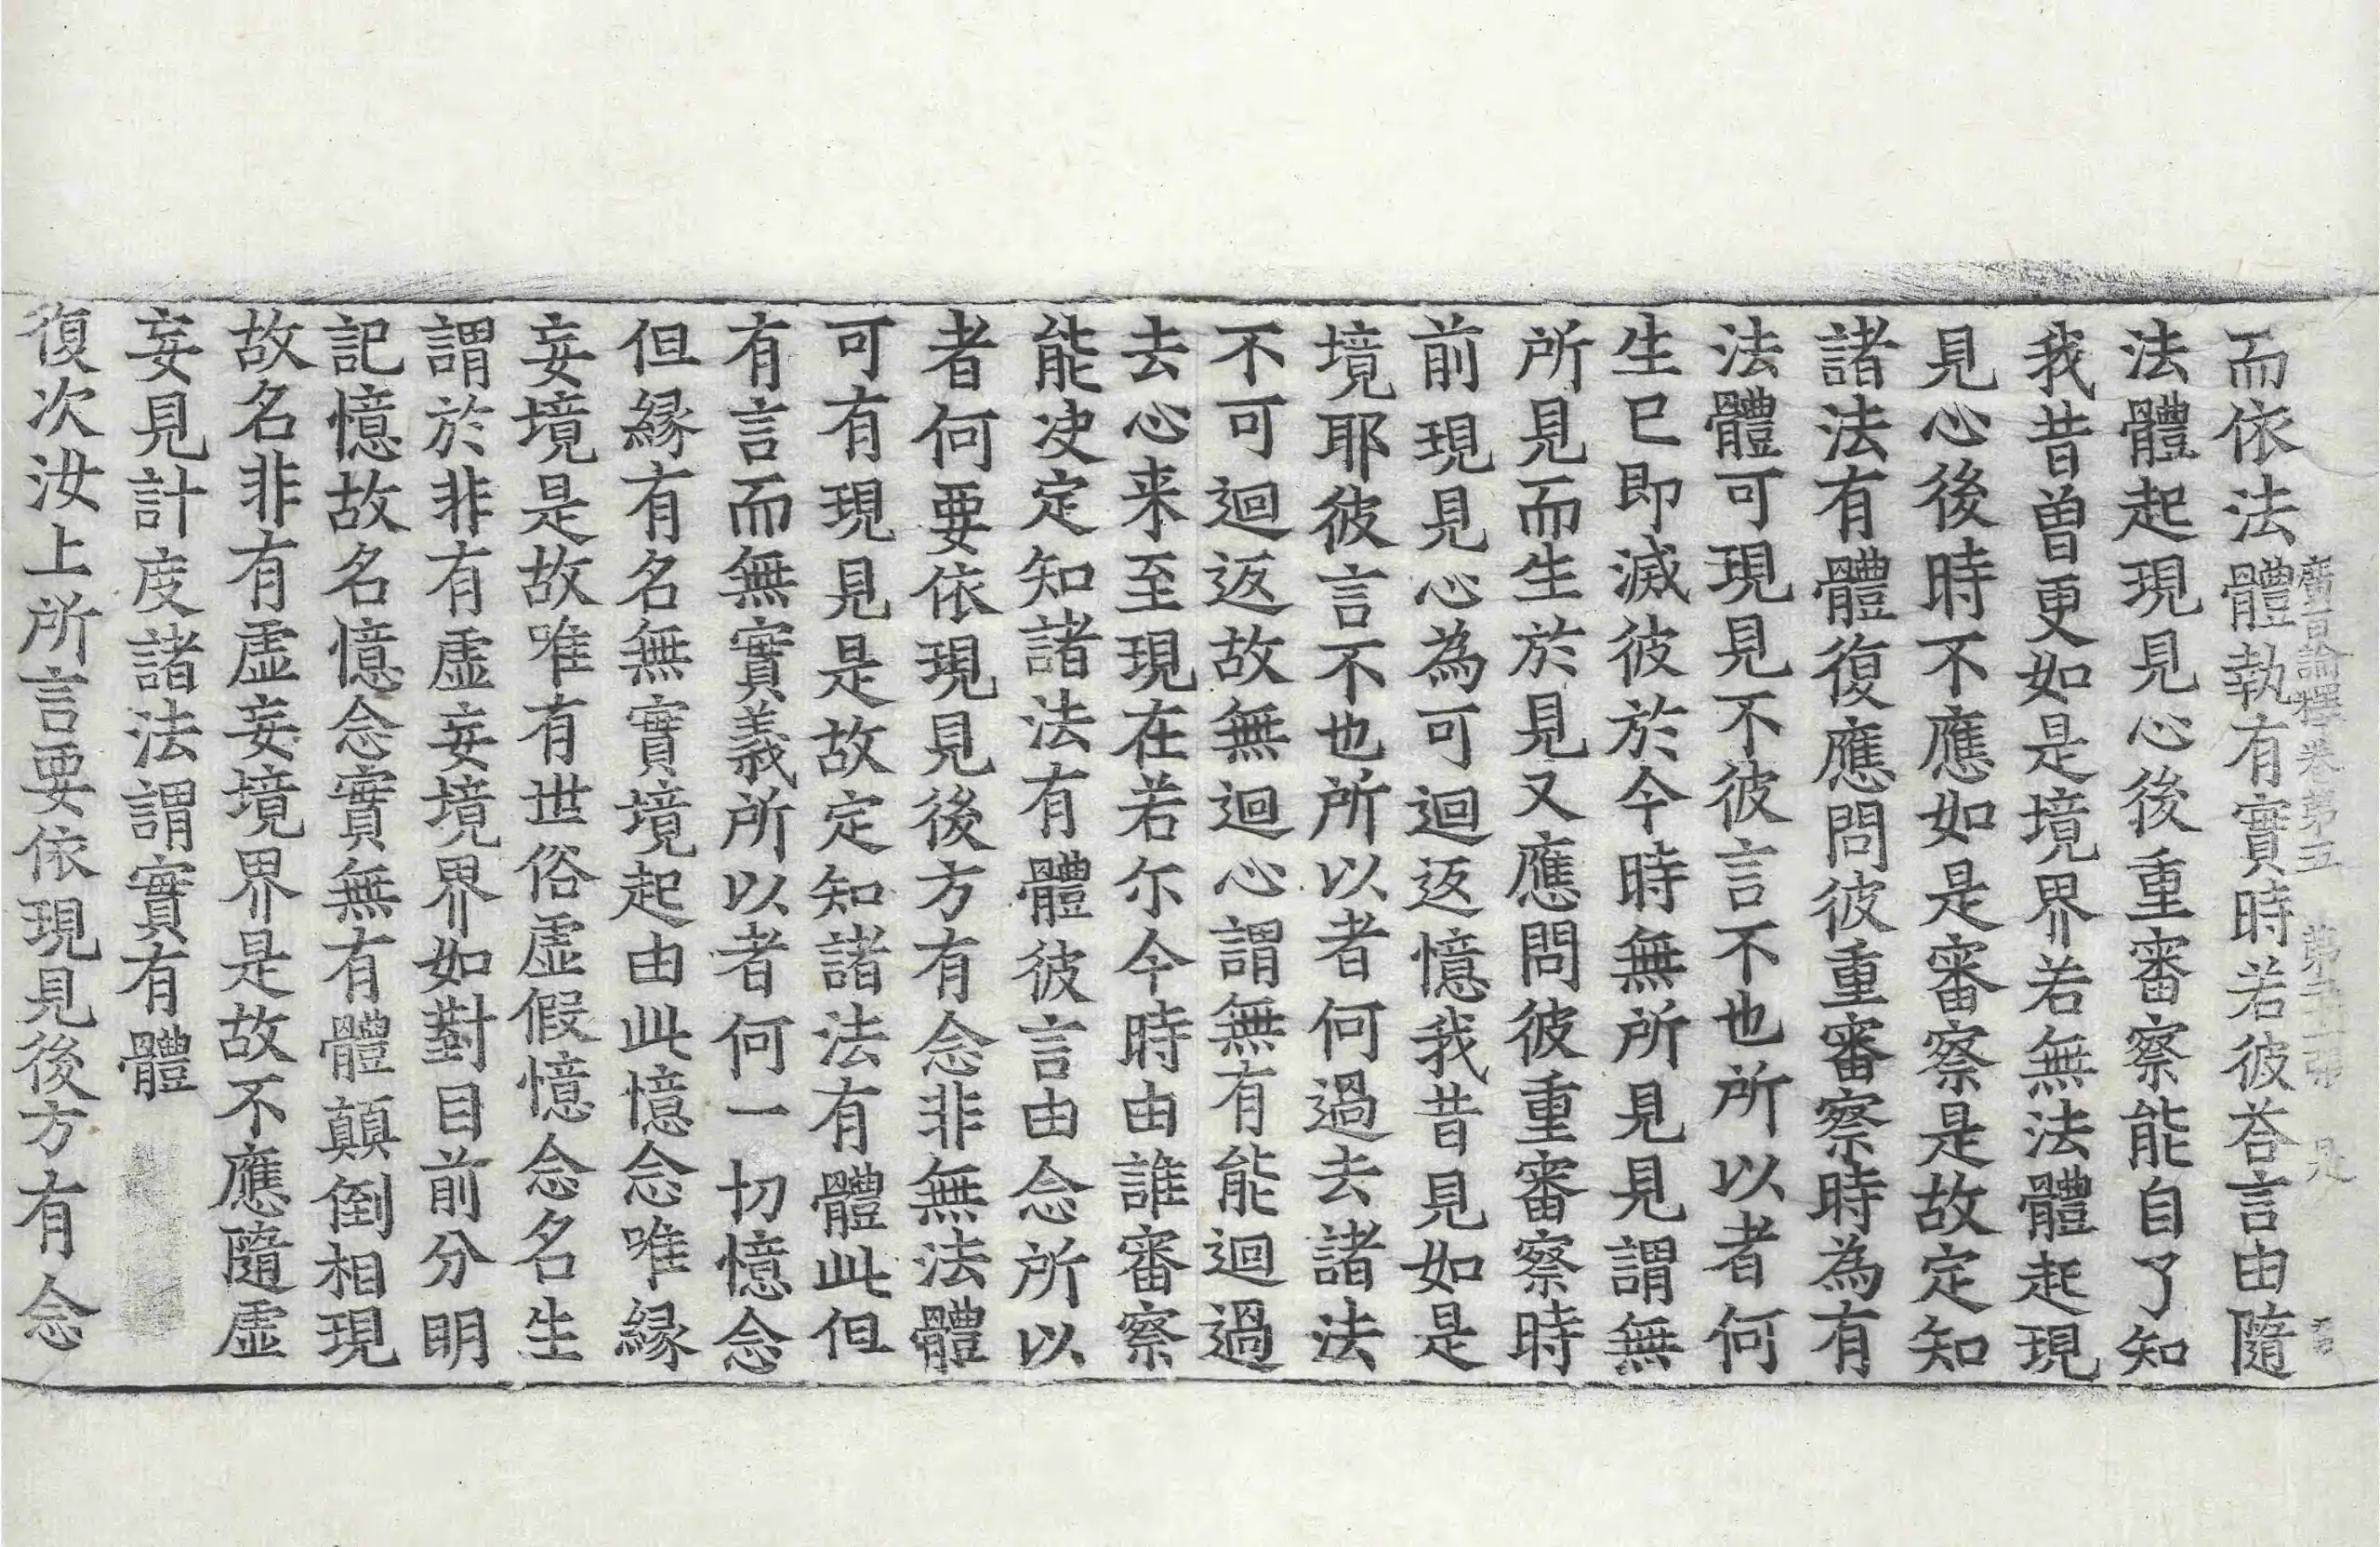 廣百論釋卷第五 第 張 是
而依法體執有實時若彼荅言由隨
法體起現見心後重審察能自了知
我昔曾更如是境界若無法體起現
見心後時不應如是審察是故定知
諸法有體復應問彼重審察時為有
法體可現見不彼言不也所以者何
生已即滅彼於今時無所見見謂無
所見而生於見又應問彼重審察時
前現見心為可迴返憶我昔見如是
境耶彼言不也所以者何過去諸法
不可迴返故無迴心謂無有能迴過
去心来至現在若尓今時由誰審察
能决定知諸法有體彼言由念所以
者何要依現見後方有念非無法體
可有現見是故定知諸法有體此但
有言而無實義所以者何一切憶念
但縁有名無實境起由此憶念唯縁
妄境是故唯有世俗虛假憶念名生
謂於非有虛妄境界如對目前分明
記憶故名憶念實無有體顛倒相現
故名非有虛妄境界是故不應隨虛
妄見計度諸法謂實有體
復次汝上所言要依現見後方有念